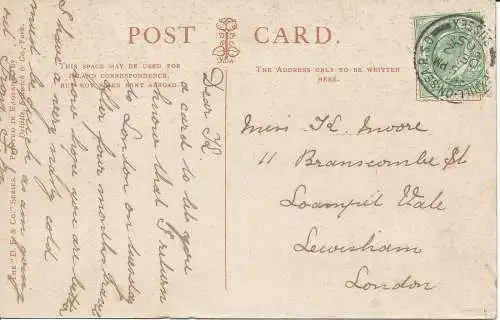 POST CARD.
THIS SPACE MAY BE USED FOR
INLAND CORRESPONDENCE,
BUT NOT WHEN SENT ABROAD.
THE ADDRESS ONLY TO BE WRITTEN
HERE.
Dear K.
a card to let you
know that I return
to London on tuesday
after four months here
how hope you are better
I have a very nasty cold
must be quick as am going
out
Miss K. Moore
11 Branscombe St
Loampit Vale
Lewisham
London
THE "D, F, & Co." SERIES. PRINTED IN ENGLAND BY
Delittle, Fenwick & Co., York.
SUSSEX